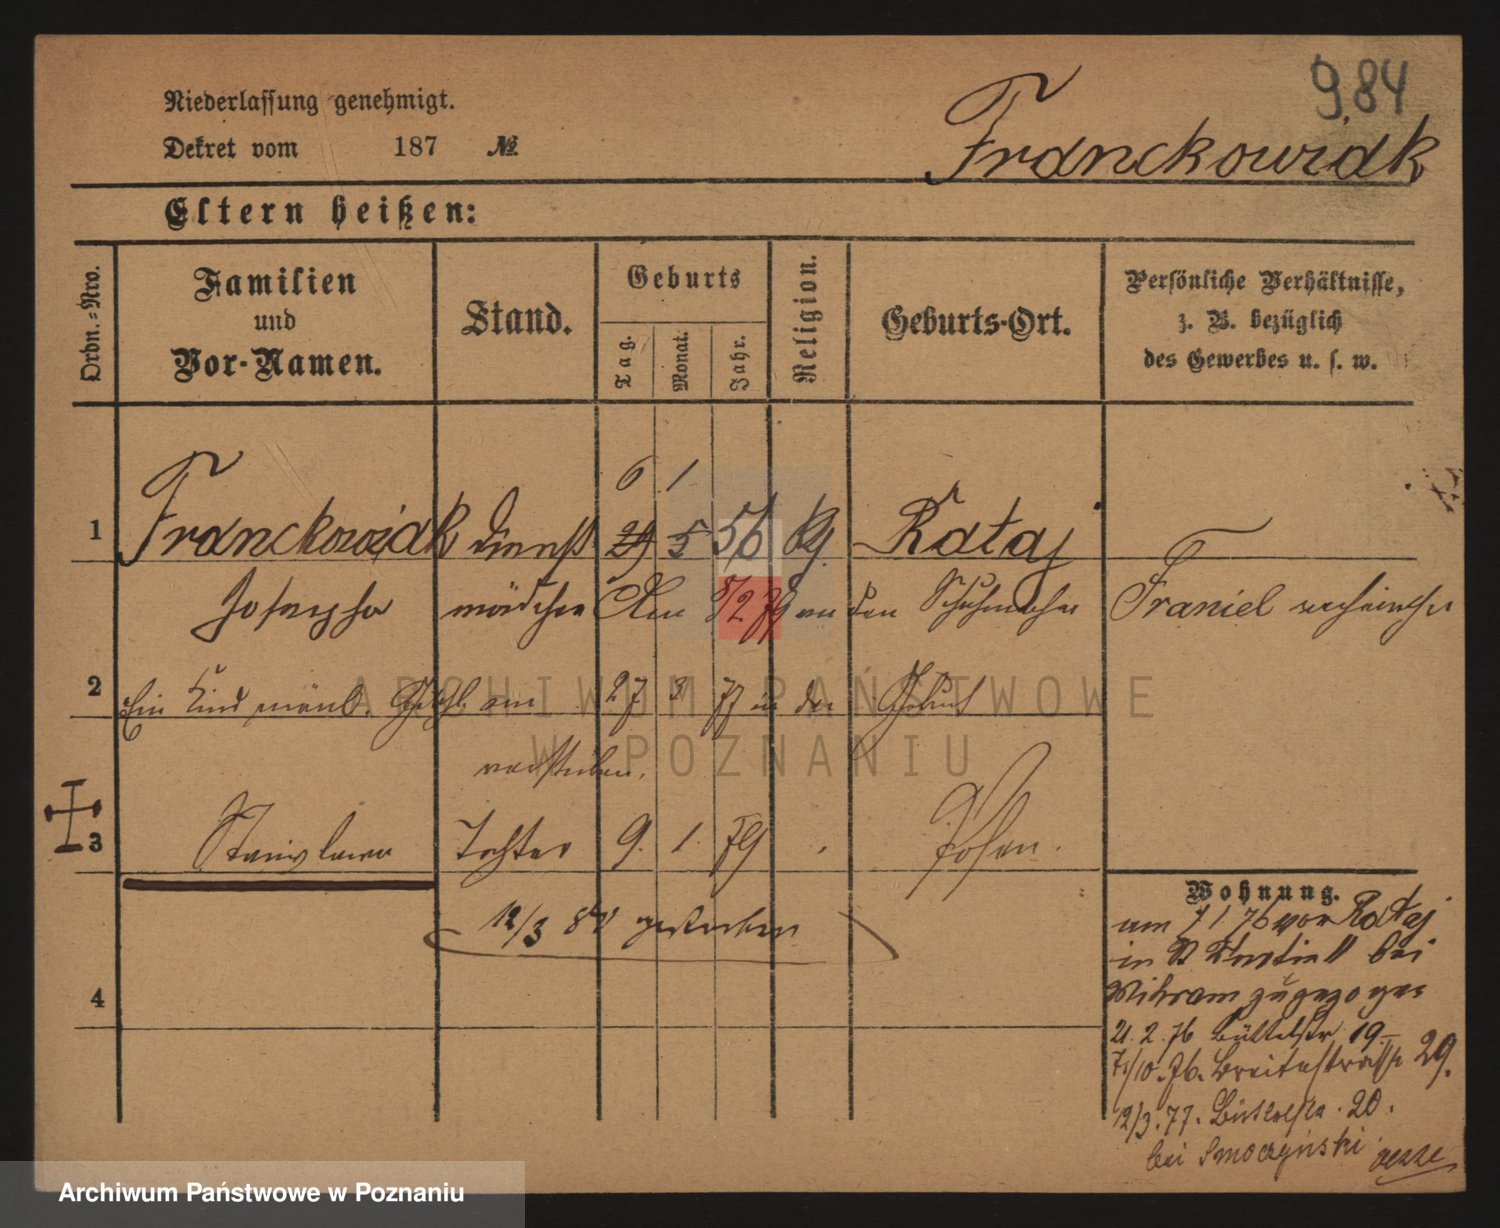 984
Niederlassung genehmigt.
Dekret vom 187 №
Franckowiak
Eltern heißen:
Ordn.=Nro.
Familien
und
Vor-Namen.
Stand.
Geburts
Tag.
Monat.
Jahr.
Religion.
Geburts-Ort.
Persönliche Verhältnisse,
z. B. bezüglich
des Gewerbes u. s. w.
6 1
1 Franckowiak Dienst 29 5 56 Rataj
Josepha mädchen an den Schuhmacher Franiel verheirathet
2 Ein Kind männl. Geschl. am 27 3 77 in der Geburt
verstorben.
3 Stanislawa Tochter 9. 1. 79 Posen.
12/3 80 gestorben
4
Wohnung.
am 7 1 76 von Rataj
in bei
zugezogen
21. 2. 76 Büttelstr 19
10. 76. Breitestrasse 29.
12/3. 77. Büttelstr. 20.
bei Smoczynski
ARCHIWUM PAŃSTWOWE
W POZNANIU
Archiwum Państwowe w Poznaniu